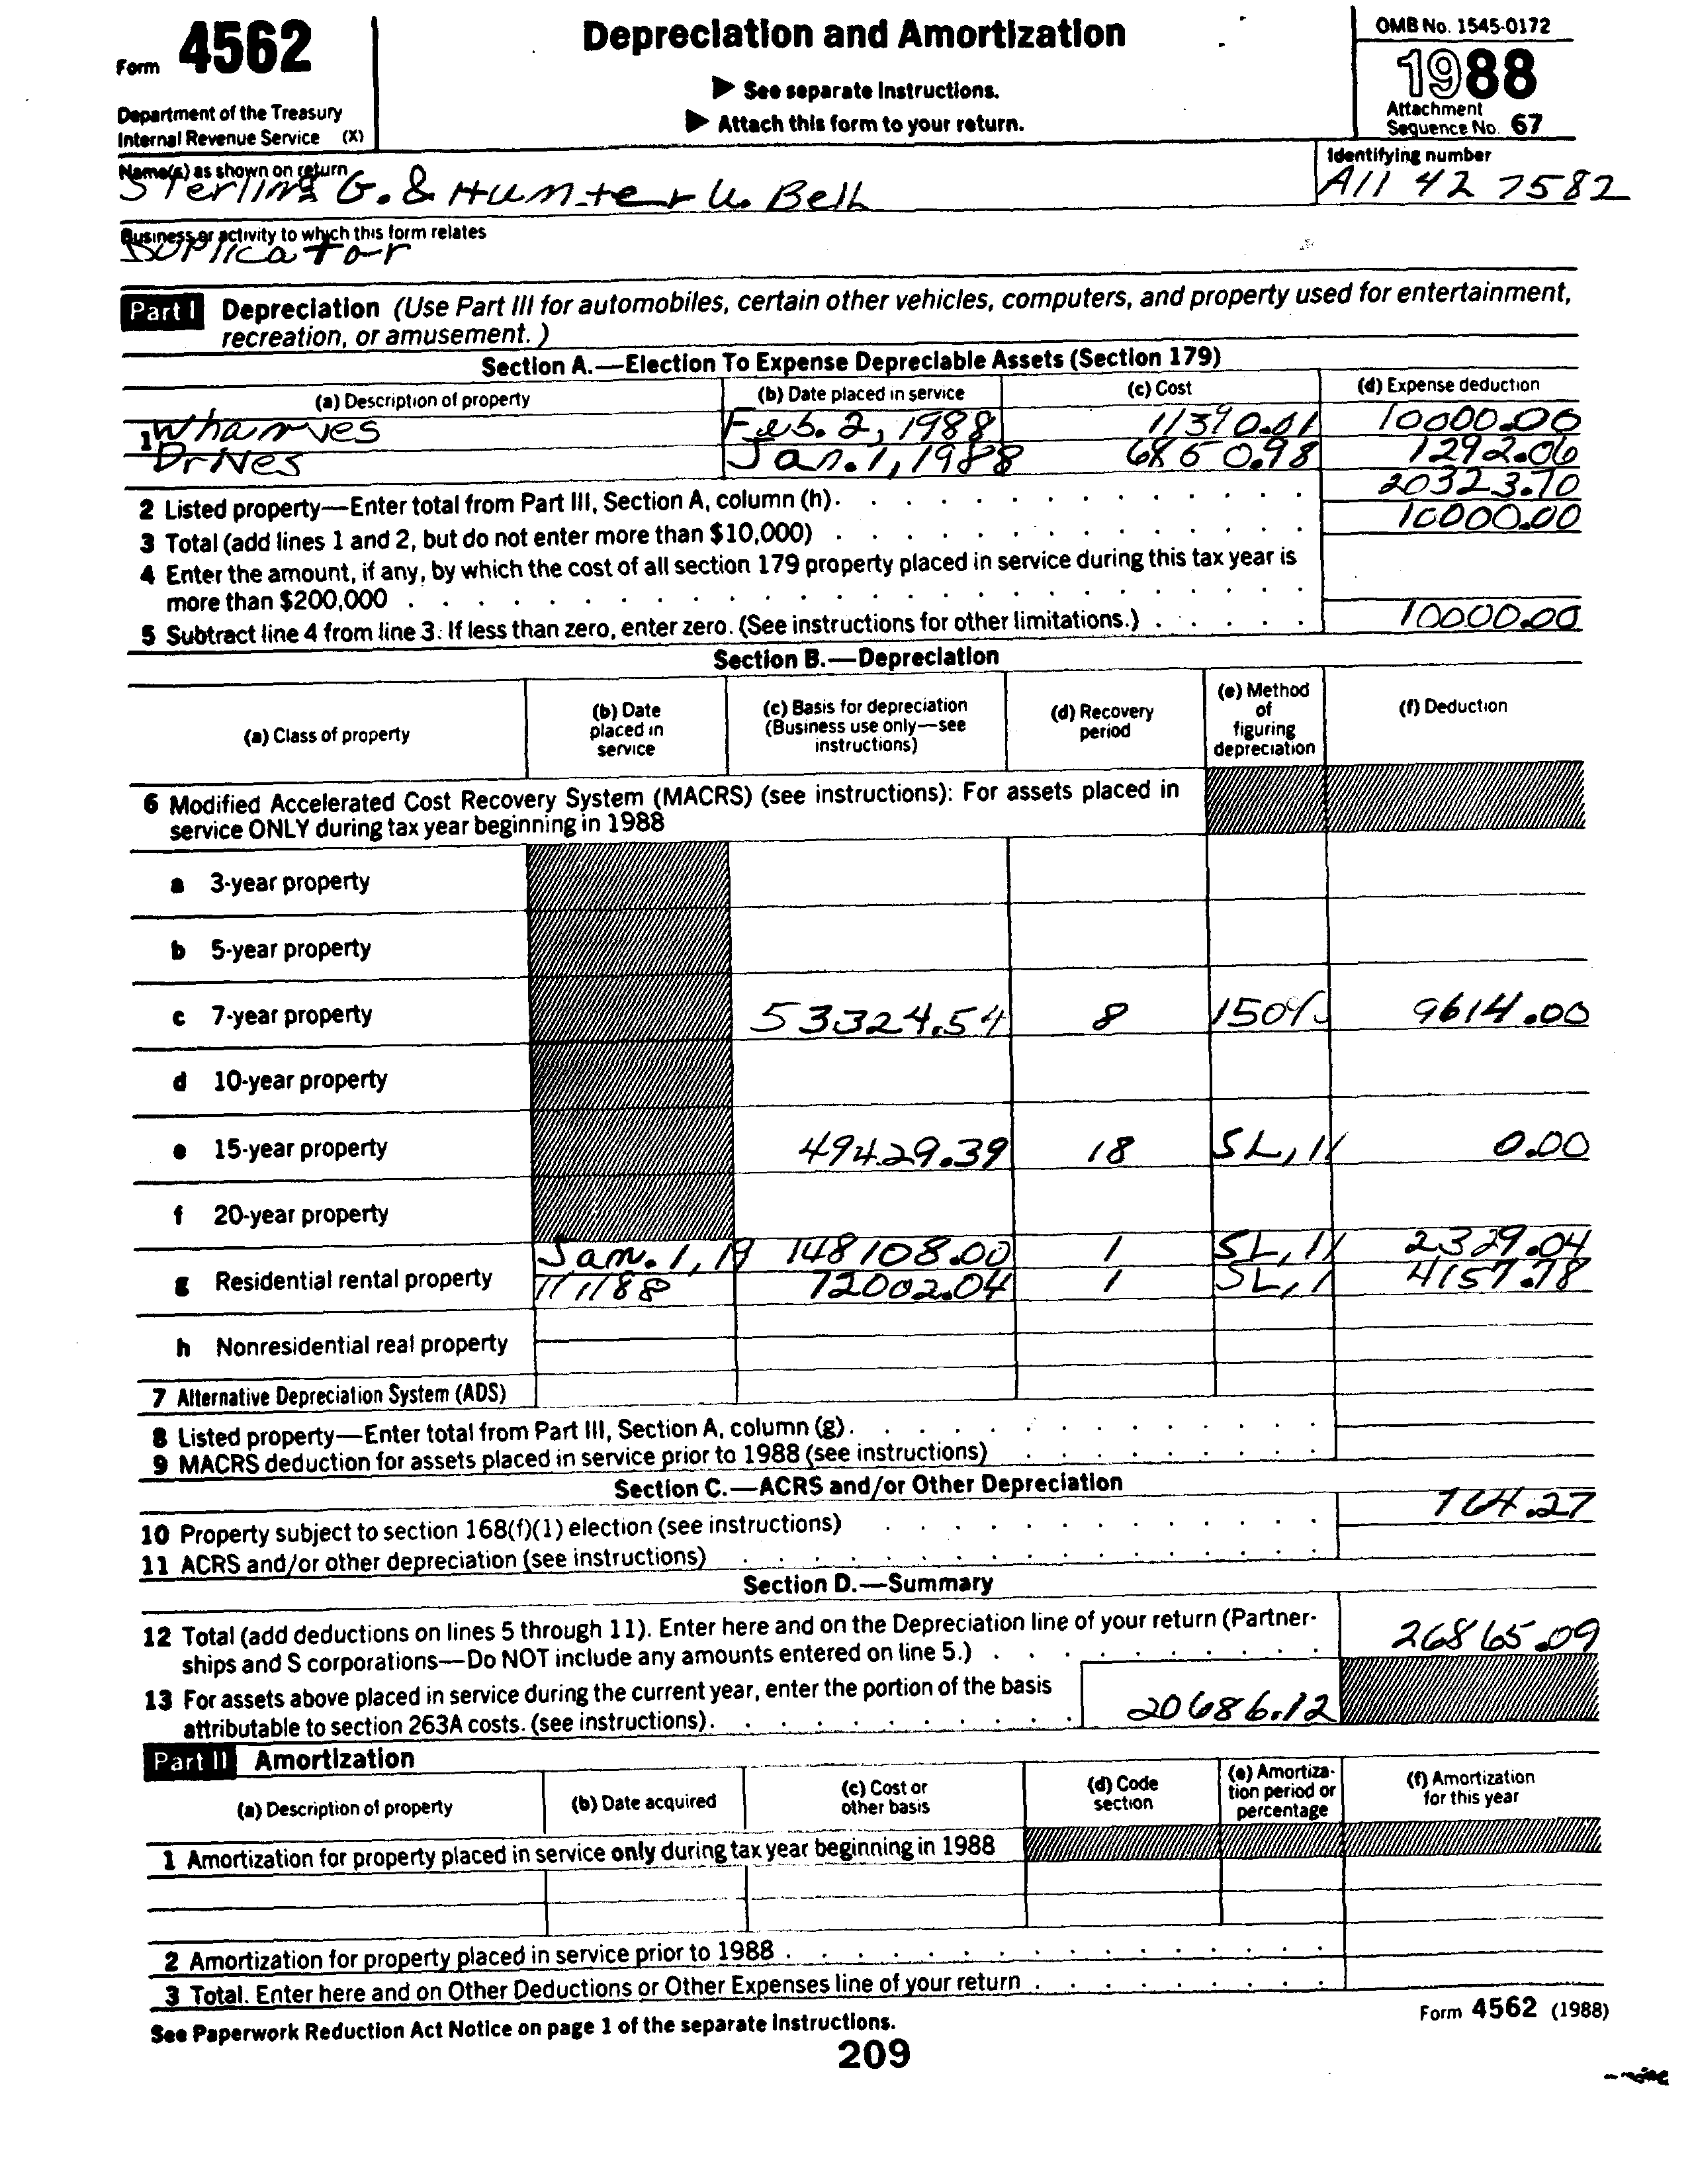 Form 4562
Depreciation and Amortization
OMB No. 1545-0172
1988
▶ See separate Instructions.
▶ Attach this form to your return.
Department of the Treasury
Internal Revenue Service (X)
Attachment
Sequence No. 67
Name(s) as shown on return
Sterling G. & Hunter U. Bell
Identifying number
A11 42 7582
Business or activity to which this form relates
Duplicator
Part I Depreciation (Use Part III for automobiles, certain other vehicles, computers, and property used for entertainment,
recreation, or amusement.)
Section A.—Election To Expense Depreciable Assets (Section 179)
(a) Description of property (b) Date placed in service (c) Cost (d) Expense deduction
1 Wharves Feb. 2, 1988 10000.00
Drives Jan. 1, 1988 1292.06
2 Listed property—Enter total from Part III, Section A, column (h). 20323.70
3 Total (add lines 1 and 2, but do not enter more than $10,000) 10000.00
4 Enter the amount, if any, by which the cost of all section 179 property placed in service during this tax year is
more than $200,000
5 Subtract line 4 from line 3. If less than zero, enter zero. (See instructions for other limitations.) 10000.00
Section B.—Depreciation
(a) Class of property (b) Date placed in service (c) Basis for depreciation (Business use only—see instructions) (d) Recovery period (e) Method of figuring depreciation (f) Deduction
6 Modified Accelerated Cost Recovery System (MACRS) (see instructions): For assets placed in
service ONLY during tax year beginning in 1988
a 3-year property
b 5-year property
c 7-year property 53324.54 8 150% 9614.00
d 10-year property
e 15-year property 49429.39 18 SL, 11 0.00
f 20-year property
Jan. 1, 19 148108.00 1 SL, 11 2329.04
g Residential rental property 11/1/88 72002.04 1 SL, 1 4157.78
h Nonresidential real property
7 Alternative Depreciation System (ADS)
8 Listed property—Enter total from Part III, Section A, column (g).
9 MACRS deduction for assets placed in service prior to 1988 (see instructions)
Section C.—ACRS and/or Other Depreciation
10 Property subject to section 168(f)(1) election (see instructions) 764.27
11 ACRS and/or other depreciation (see instructions)
Section D.—Summary
12 Total (add deductions on lines 5 through 11). Enter here and on the Depreciation line of your return (Partner-
ships and S corporations—Do NOT include any amounts entered on line 5.) 26865.09
13 For assets above placed in service during the current year, enter the portion of the basis
attributable to section 263A costs. (see instructions). 20686.12
Part II Amortization
(a) Description of property (b) Date acquired (c) Cost or other basis (d) Code section (e) Amortiza-tion period or percentage (f) Amortization for this year
1 Amortization for property placed in service only during tax year beginning in 1988
2 Amortization for property placed in service prior to 1988
3 Total. Enter here and on Other Deductions or Other Expenses line of your return
See Paperwork Reduction Act Notice on page 1 of the separate instructions.
Form 4562 (1988)
209